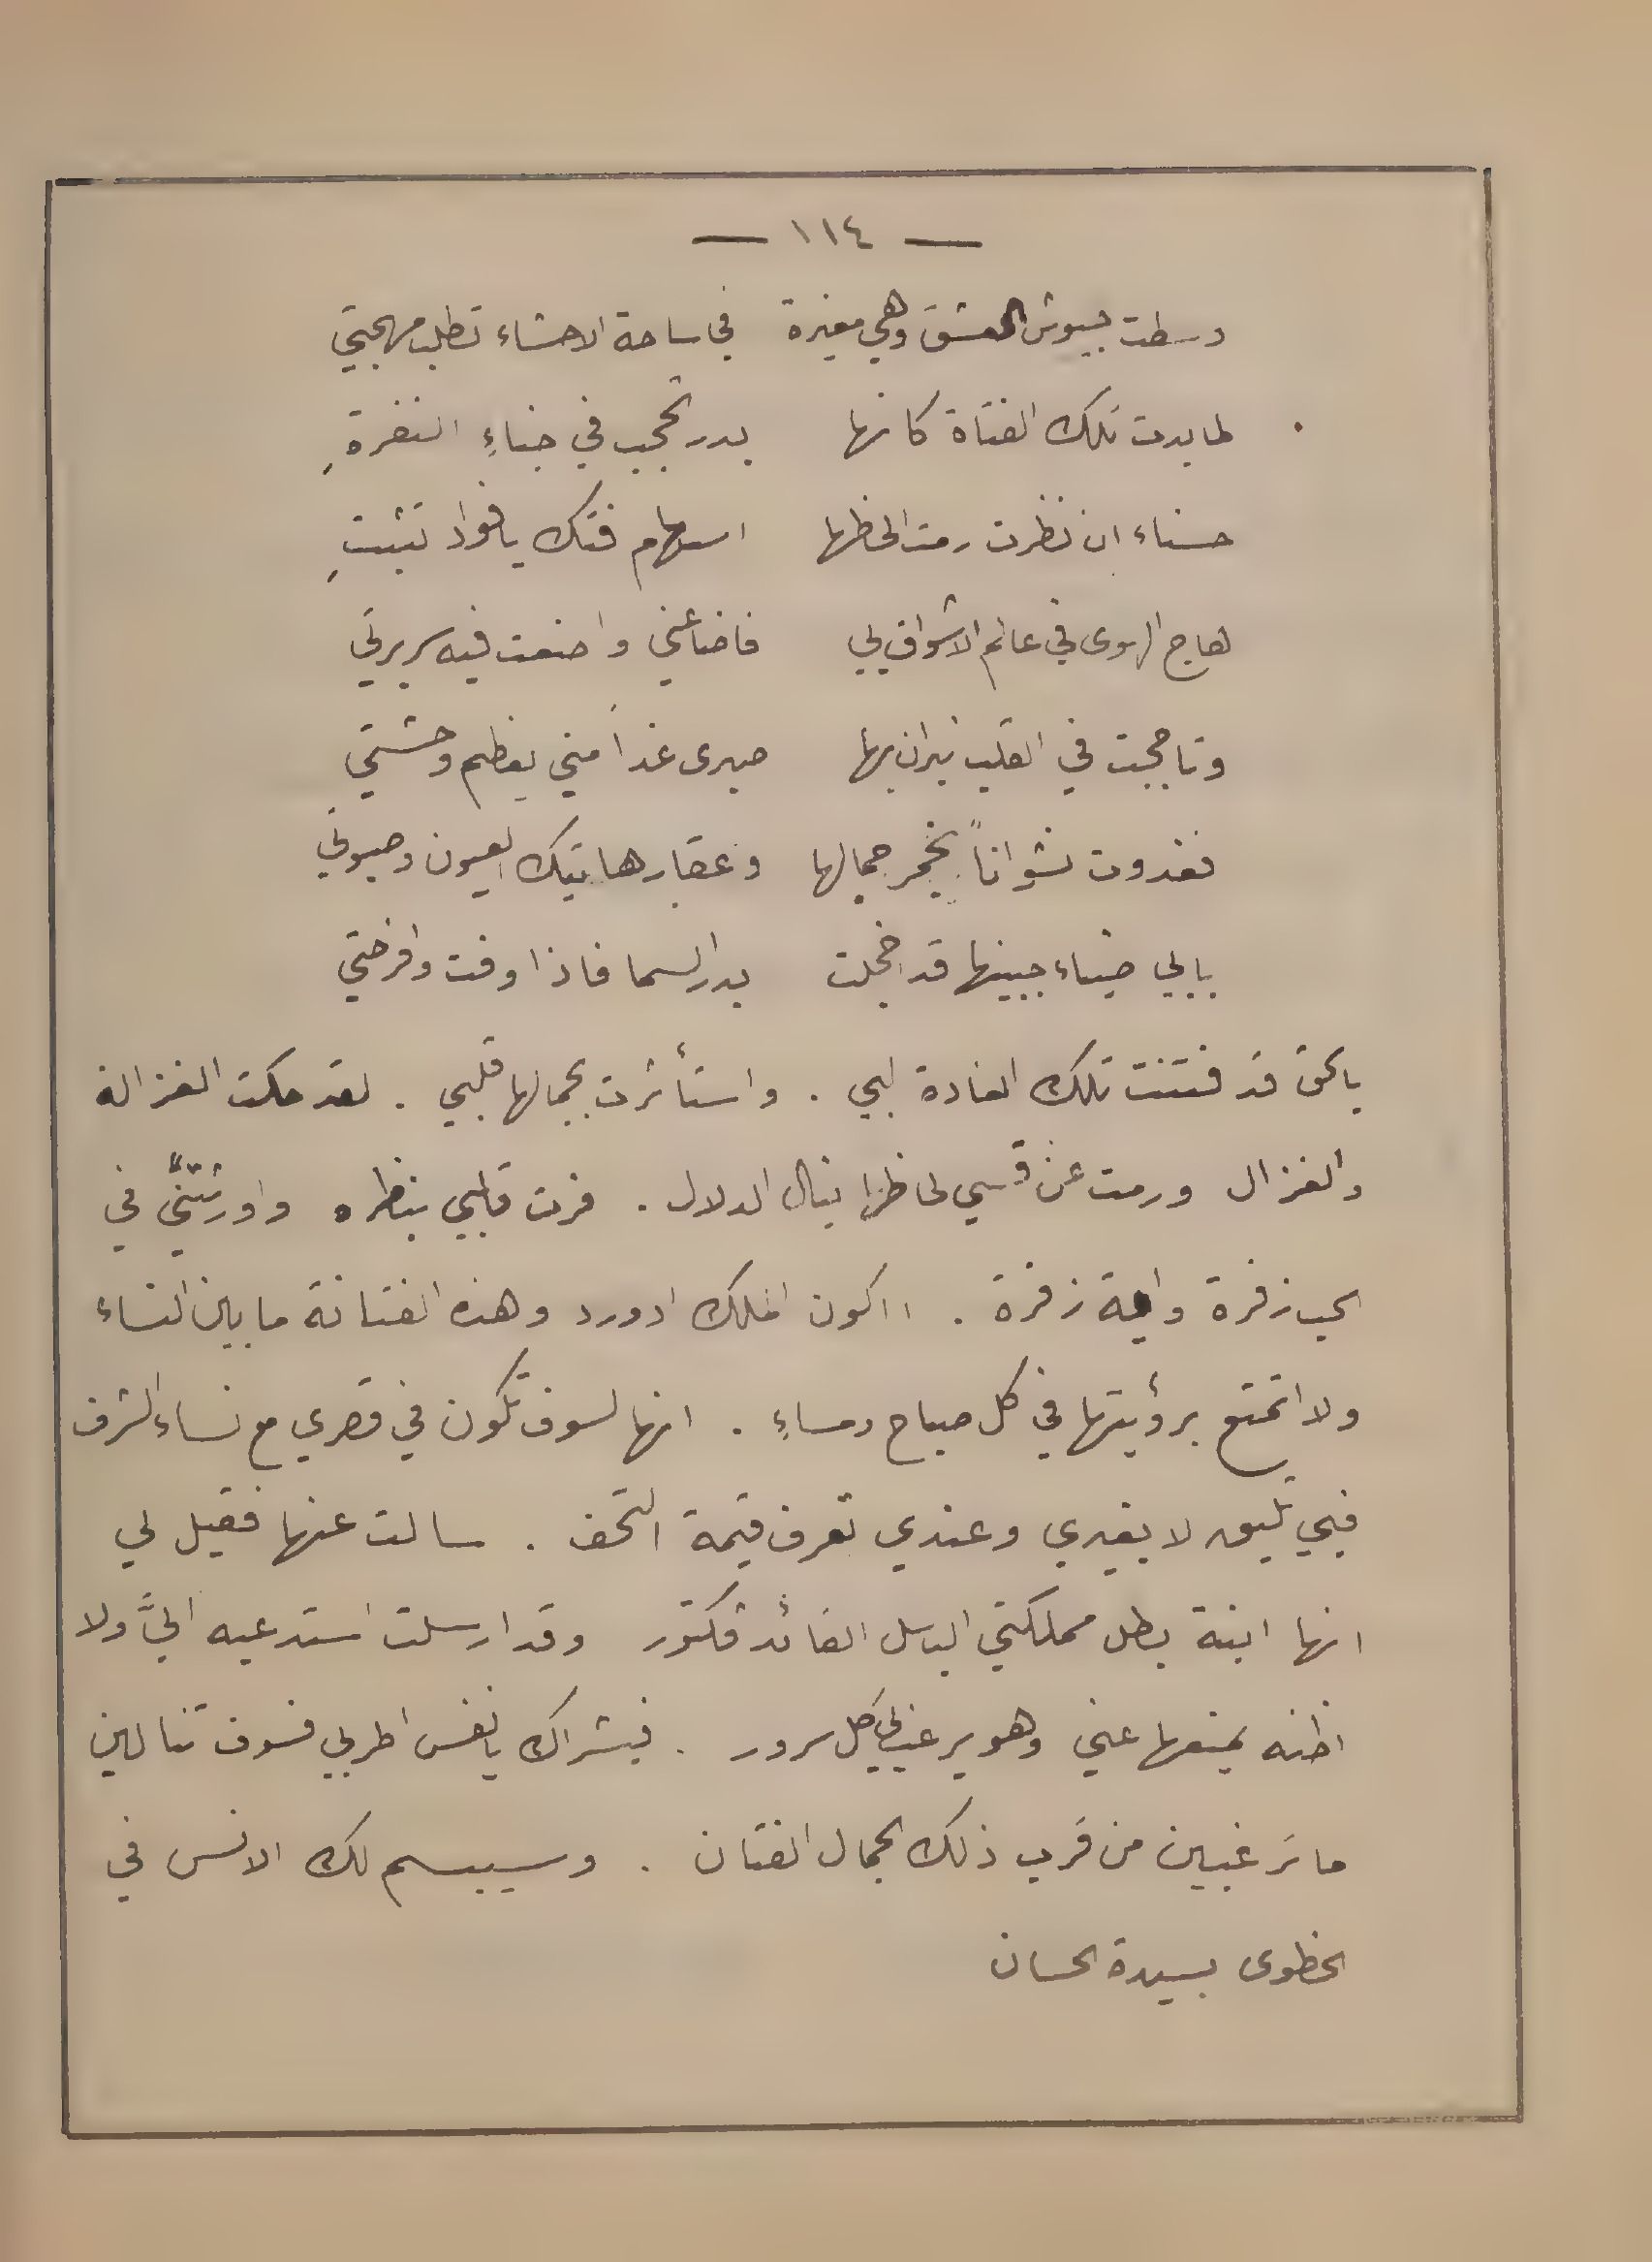 — ١١٤ —
وسطت جيوش العشق وهي مغيرة في ساحة الاحشاء تطلب مهجتي
لما بدت تلك الفتاة كانها بدر تحجب في خباءِ النفرةِ
حسناء ان نظرت رمت الحاظها اسهام فتك يا فواد تثبتِ
هاج الهوى في عالم الاشواق لي فاضاعني واضعت فيه سريرتي
وتاججت في القلب نيران بها صبرى غدا مني يعظم وحشتي
فغدوت نشواناً بخمر جمالها وعقار هاتيك العيون وصبوتي
بابي ضياء جبينها قد اخجلت بدر السما فاذا وفت وافرحتي
يا لحق قد فتنت تلك الغادة لبي . واستأثرت بجمالها قلبي . لقد حكت الغزالة
والغزال ورمت عن قسي لحاظها نبال الدلال . فرت قلبي بنظره واورثتنيّ في
الحب زفرة واية زفرة . ااكون الملك ادورد وهذه الفتانة ما بين النساء
ولا اتمتع برؤيتها في كل صباح ومساءِ . انها لسوف تكون في قصري مع نساء الشرف
فبي تليق لا بغيري وعندي تعرف قيمة التحف . سالت عنها فقيل لي
انها ابنة بطل مملكتي الباسل القائد فكتور وقد ارسلت استدعيه اليَّ ولا
اظنه يمنعها عني وهو يرغب لي كل سرور . فبشراك يا نفس اطربي فسوف تنالين
ما ترغبين من قرب ذلك الجمال الفتان . وسيبسم لك الانس في
الحظوى بسيدة الحسان